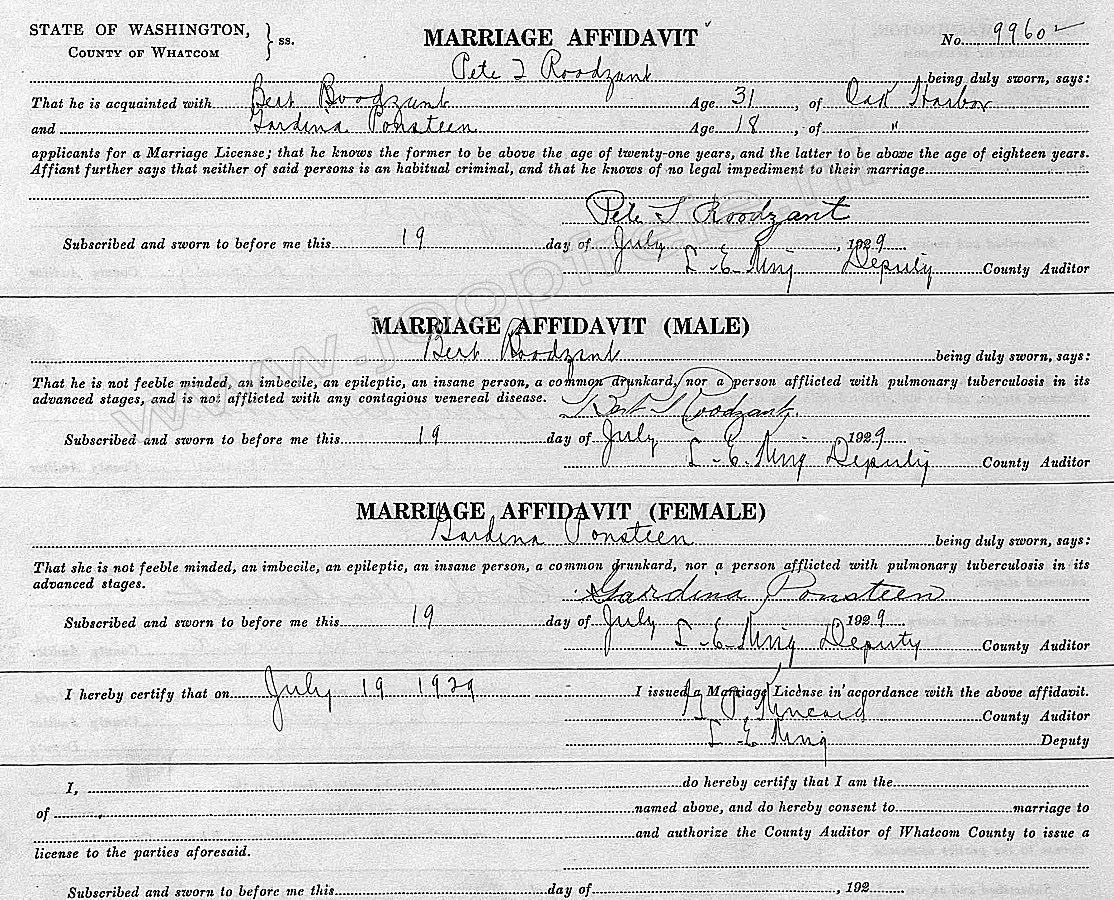 STATE OF WASHINGTON, } ss. MARRIAGE AFFIDAVIT No. 9960
COUNTY OF WHATCOM
Pete I Roodzant being duly sworn, says:
That he is acquainted with Bert Roodzant Age 31, of Oak Harbor
and Gardina Ponsteen Age 18, of "
applicants for a Marriage License; that he knows the former to be above the age of twenty-one years, and the latter to be above the age of eighteen years.
Affiant further says that neither of said persons is an habitual criminal, and that he knows of no legal impediment to their marriage
Pete I Roodzant
Subscribed and sworn to before me this 19 day of July, 1929
L-E-King Deputy County Auditor
MARRIAGE AFFIDAVIT (MALE)
Bert Roodzant being duly sworn, says:
That he is not feeble minded, an imbecile, an epileptic, an insane person, a common drunkard, nor a person afflicted with pulmonary tuberculosis in its
advanced stages, and is not afflicted with any contagious venereal disease. Bert Roodzant
Subscribed and sworn to before me this 19 day of July, 1929
L-E-King Deputy County Auditor
MARRIAGE AFFIDAVIT (FEMALE)
Gardina Ponsteen being duly sworn, says:
That she is not feeble minded, an imbecile, an epileptic, an insane person, a common drunkard, nor a person afflicted with pulmonary tuberculosis in its
advanced stages. Gardina Ponsteen
Subscribed and sworn to before me this 19 day of July, 1929
L-E-King Deputy County Auditor
I hereby certify that on July 19 1929 I issued a Marriage License in accordance with the above affidavit.
Kincaid County Auditor
L-E King Deputy
I, do hereby certify that I am the
of named above, and do hereby consent to marriage to
and authorize the County Auditor of Whatcom County to issue a
license to the parties aforesaid.
Subscribed and sworn to before me this day of , 192